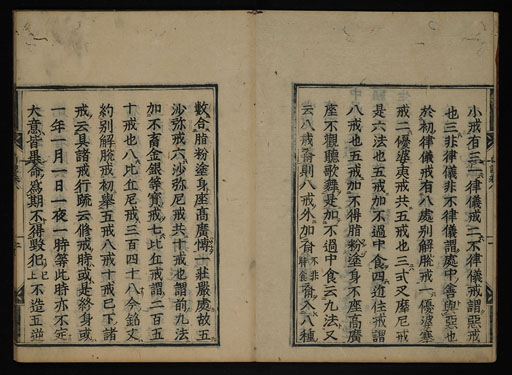 小戒有三一律儀戒二不律儀戒謂惡戒
也三非律儀非不律儀謂處中善與惡也
於初律儀戒有八處別解脫戒一優婆塞
戒二優婆夷戒共五戒也三式叉摩尼戒
是六法也五戒加不過中食四近住戒謂
八戒也五戒加不得脂粉塗身不座高廣
座不觀聽歌舞是加不過中食云九法又
云八戒齋則八戒外加齋 不非時食 齋入八種
數合脂粉塗身座高廣博一莊嚴處故五
沙弥戒六沙弥尼戒共十戒也謂前九法
加不畜金銀等寶戒七比丘戒謂二百五
十戒也八比丘尼戒三百四十八今銘文
約別解脫戒初舉五戒八戒十戒已下諸
戒云具諸戒行疏云修戒時或是終身或
一年一月一日一夜一時等此時亦不定
大意皆畢命爲期不得毀犯 上 不造五逆